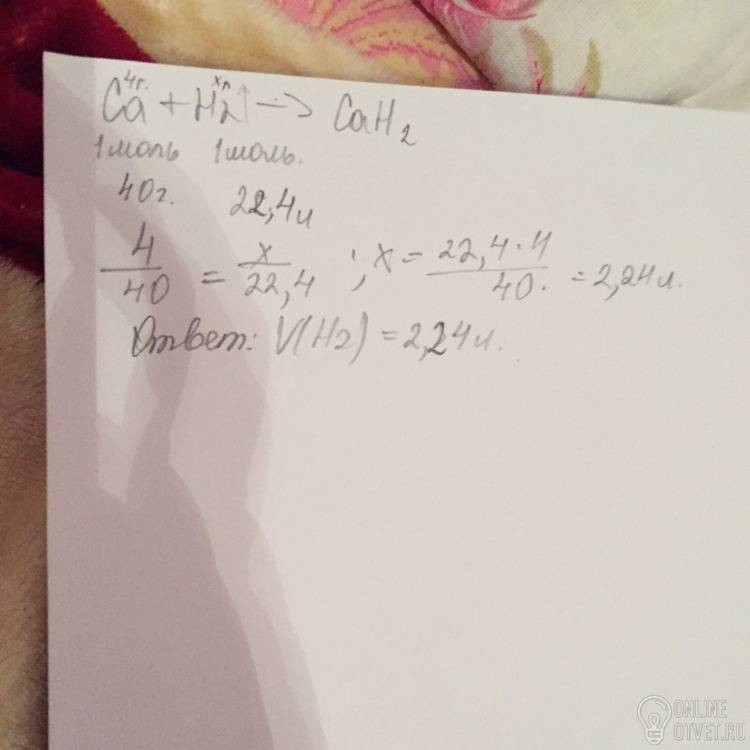 4г. хл
Ca + H2↑ → CaH2
1 моль 1 моль.
40г. 22,4л
4/40 = x/22,4 ; x = 22,4·4/40. = 2,24л.
Ответ: V(H2) = 2,24л.
ONLINE
OTVET.RU